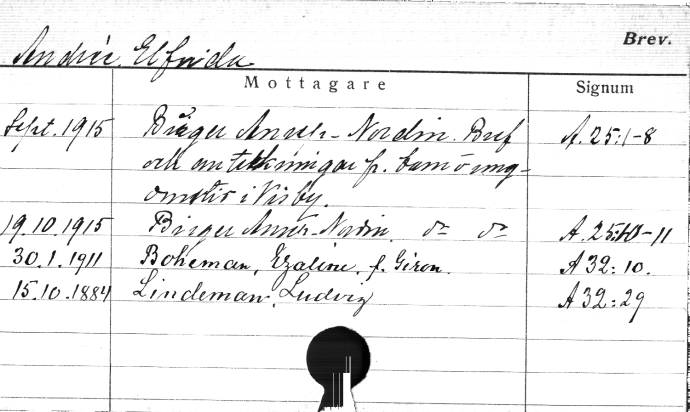 Brev.
Andrée, Elfrida
Mottagare Signum
Sept. 1915 Birger Anrep-Nordin. Bref A. 25:1-8
och anteckningar fr. barn o ung-
domstid i Visby.
19.10.1915 Birger Anrep-Nordin. do do A. 25:10-11
30.1.1911 Boheman, Ezaline, f. Giron. A 32:10.
15.10.1884 Lindeman, Ludvig A 32:29